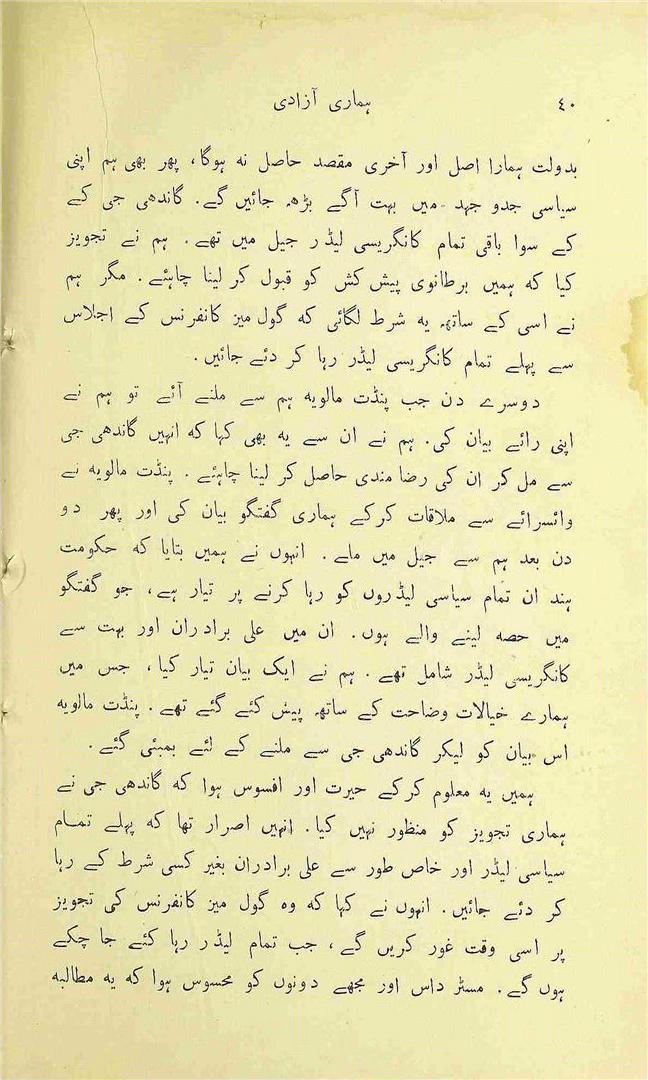 ٤٠ ہماری آزادی
بدولت ہمارا اصل اور آخری مقصد حاصل نہ ہوگا، پھر بھی ہم اپنی
سیاسی جدو جہد میں بہت آگے بڑھ جائیں گے۔ گاندھی جی کے
کے سوا باقی تمام کانگریسی لیڈر جیل میں تھے۔ ہم نے تجویز
کیا کہ ہمیں برطانوی پیش کش کو قبول کر لینا چاہئے۔ مگر ہم
نے اسی کے ساتھ یہ شرط لگائی کہ گول میز کانفرنس کے اجلاس
سے پہلے تمام کانگریسی لیڈر رہا کر دئے جائیں۔
دوسرے دن جب پنڈت مالویہ ہم سے ملنے آئے تو ہم نے
اپنی رائے بیان کی۔ ہم نے ان سے یہ بھی کہا کہ انہیں گاندھی جی
سے مل کر ان کی رضا مندی حاصل کر لینا چاہئے۔ پنڈت مالویہ نے
وائسرائے سے ملاقات کرکے ہماری گفتگو بیان کی اور پھر دو
دن بعد ہم سے جیل میں ملے۔ انہوں نے ہمیں بتایا کہ حکومت
ہند ان تمام سیاسی لیڈروں کو رہا کرنے پر تیار ہے، جو گفتگو
میں حصہ لینے والے ہوں۔ ان میں علی برادران اور بہت سے
کانگریسی لیڈر شامل تھے۔ ہم نے ایک بیان تیار کیا، جس میں
ہمارے خیالات وضاحت کے ساتھ پیش کئے گئے تھے۔ پنڈت مالویہ
اس بیان کو لیکر گاندھی جی سے ملنے کے لئے بمبئی گئے۔
ہمیں یہ معلوم کرکے حیرت اور افسوس ہوا کہ گاندھی جی نے
ہماری تجویز کو منظور نہیں کیا۔ انہیں اصرار تھا کہ پہلے تمام
سیاسی لیڈر اور خاص طور سے علی برادران بغیر کسی شرط کے رہا
کر دئے جائیں۔ انہوں نے کہا کہ وہ گول میز کانفرنس کی تجویز
پر اسی وقت غور کریں گے، جب تمام لیڈر رہا کئے جا چکے
ہوں گے۔ مسٹر داس اور مجھے دونوں کو محسوس ہوا کہ یہ مطالبہ